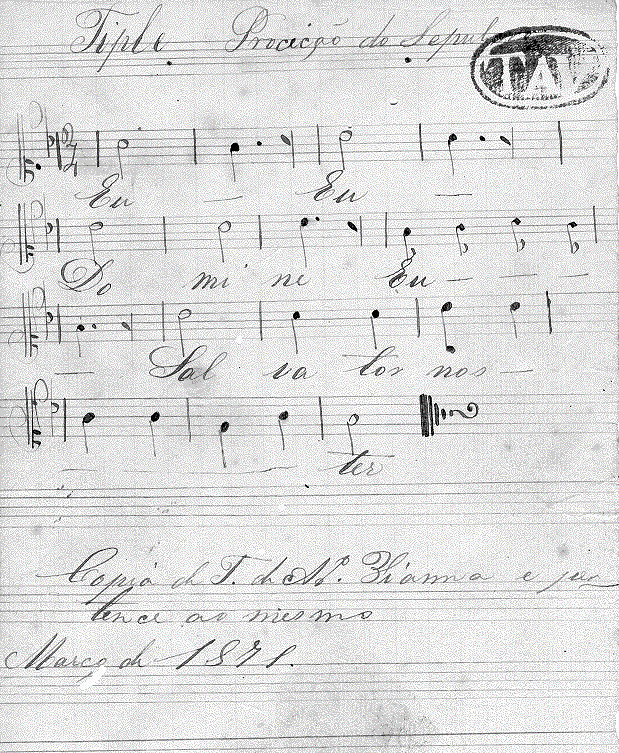 Tiple Procição do Sepul
TAV
Eu — Eu —
Do mi ne Eu — — —
— Sal va tor nos —
— — — ter
Copia de T. de Aº. Vianna e per
tence ao mesmo
Março de 1871.